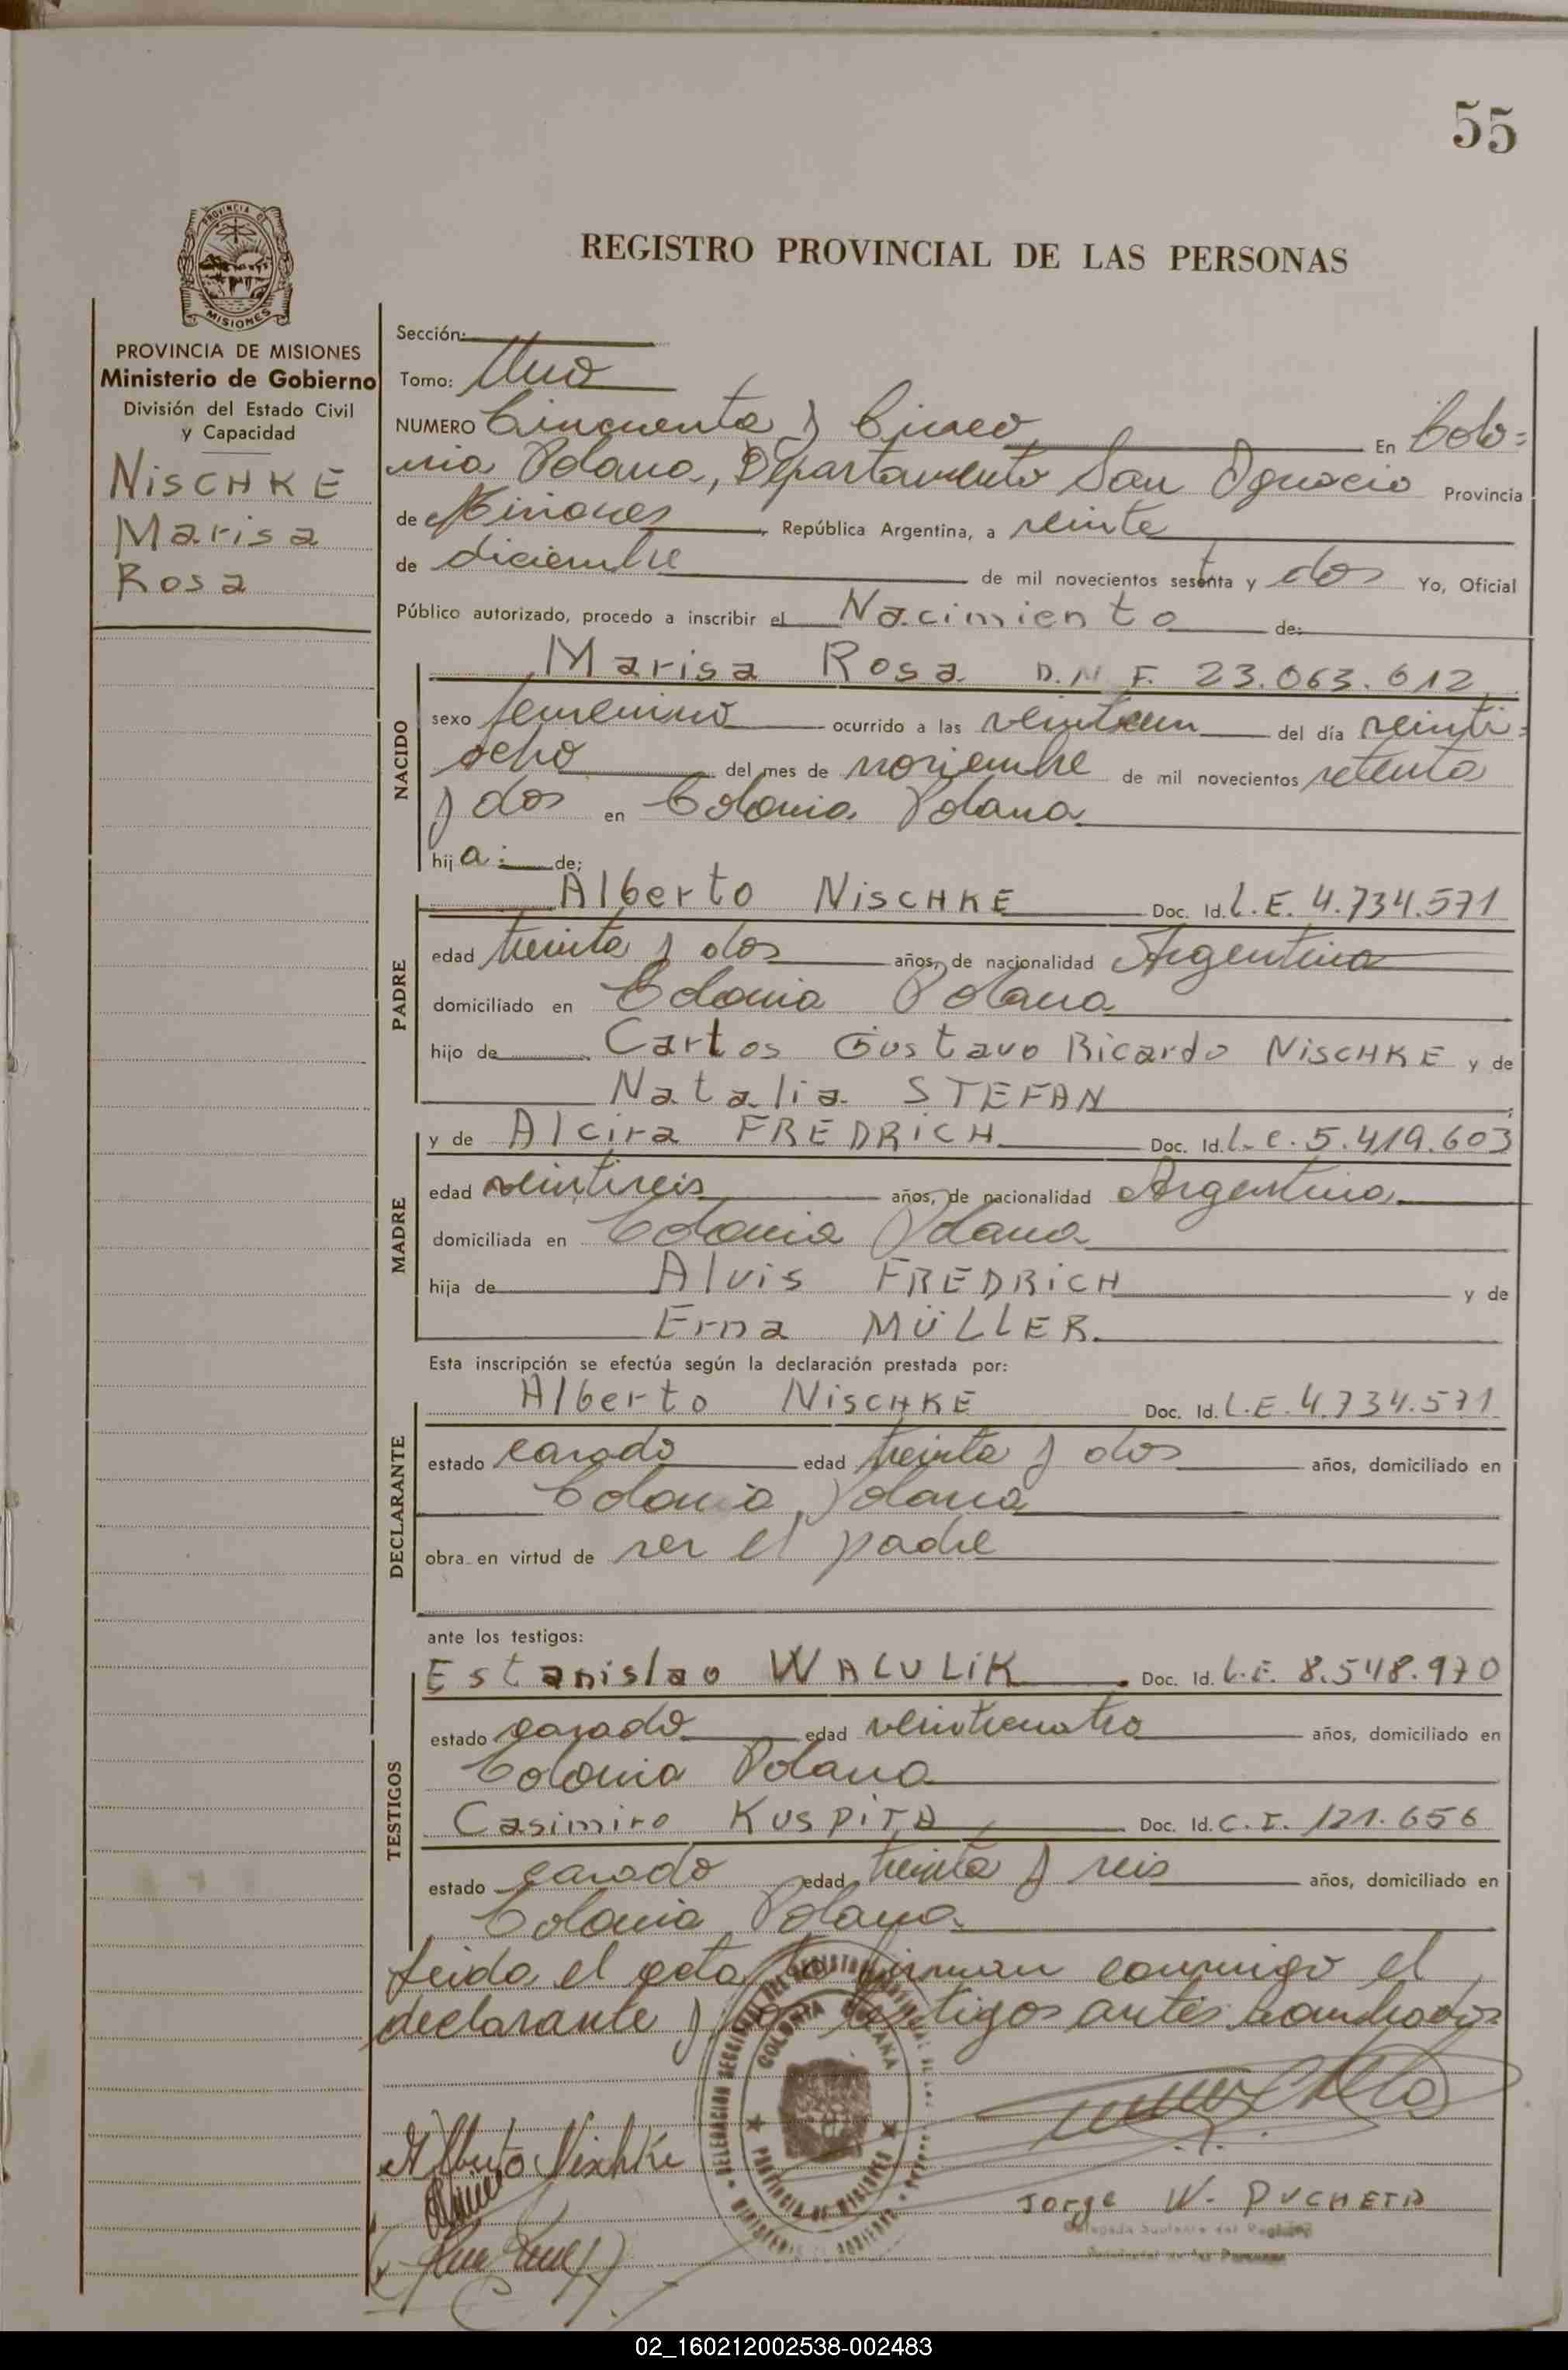 55
PROVINCIA DE
MISIONES
REGISTRO PROVINCIAL DE LAS PERSONAS
PROVINCIA DE MISIONES
Ministerio de Gobierno
División del Estado Civil
y Capacidad
NISCHKE
Marisa
Rosa
Sección:
Tomo: Uno
NUMERO Cincuenta y Cinco En Colo=
nia Polana, Departamento San Ignacio Provincia
de Misiones, República Argentina, a veinte
de diciembre de mil novecientos setenta y dos Yo, Oficial
Público autorizado, procedo a inscribir el Nacimiento de:
NACIDO
Marisa Rosa D.N.F. 23.063.612
sexo femenino ocurrido a las veintiun del día veinti=
ocho del mes de noviembre de mil novecientos setenta
y dos en Colonia Polana
hija: de:
PADRE
Alberto NISCHKE Doc. Id. L.E. 4.734.571
edad treinta y dos años, de nacionalidad Argentina
domiciliado en Colonia Polana
hijo de Carlos Gustavo Ricardo NISCHKE y de
Natalia STEFAN
MADRE
y de Alcira FREDRICH Doc. Id. L.C. 5.419.603
edad veintiseis años, de nacionalidad Argentina
domiciliada en Colonia Polana
hija de Alvis FREDRICH y de
Erna MÜLLER
Esta inscripción se efectúa según la declaración prestada por:
DECLARANTE
Alberto NISCHKE Doc. Id. L.E. 4.734.571
estado casado edad treinta y dos años, domiciliado en
Colonia Polana
obra en virtud de ser el padre
ante los testigos:
TESTIGOS
Estanislao WALULIK Doc. Id. L.E. 8.548.970
estado casado edad veinticuatro años, domiciliado en
Colonia Polana
Casimiro KUSPITA Doc. Id. C.I. 121.656
estado casado edad treinta y seis años, domiciliado en
Colonia Polana
Leida el acta la firman conmigo el
declarante y los testigos antes nombrados
COLONIA POLANA
PROVINCIA DE MISIONES
Alberto Nischke
Jorge W. PUCHETA
02_160212002538-002483